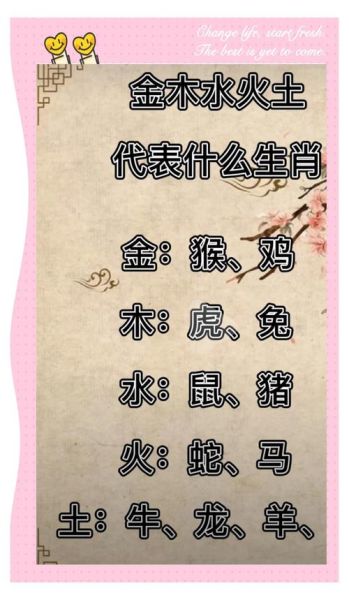 Change life, start fresh.
The best is yet to come.
金木水火土
代表什么生肖
金：猴、鸡
木：虎、兔
水：鼠、猪
火：蛇、马
土：牛、龙、羊、